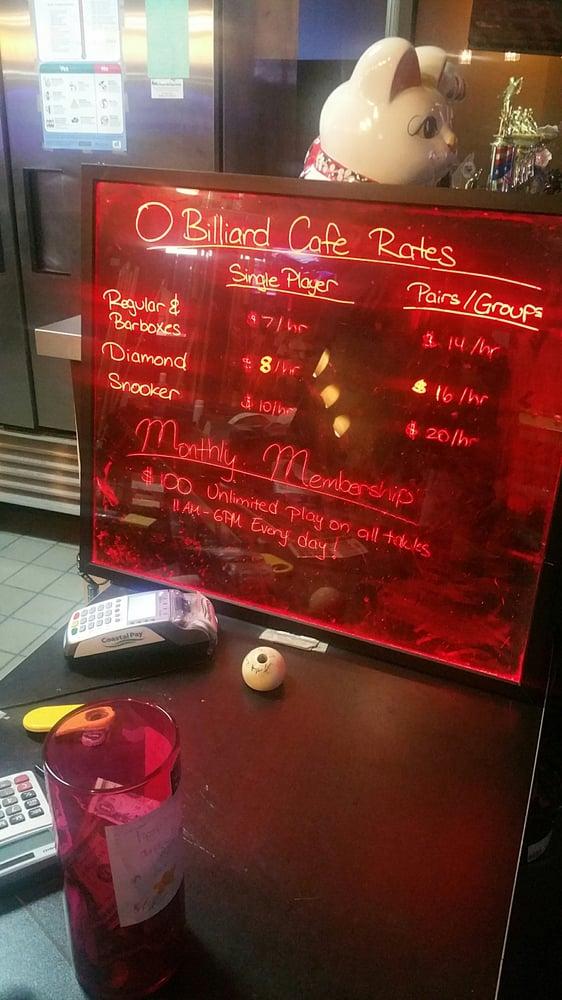 O Billiard Cafe Rates
Single Player
Pairs/Groups
Regular &
Barboxes
$7/hr
$14/hr
Diamond
$8/hr
$16/hr
Snooker
$10/hr
$20/hr
Monthly Membership
$100 Unlimited Play on all tables
11AM-6PM Every day!
CoastalPay
Yes
No